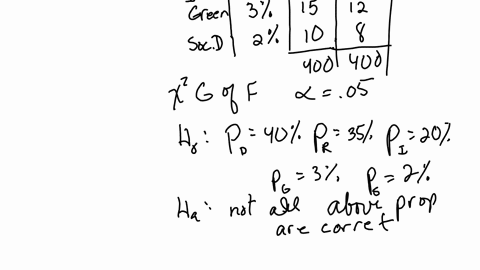 Green 3% 15 12
Soc.D 2% 10 8
400 400
χ² G of F α = .05
H₀: P_D = 40% P_R = 35% P_I = 20%
P_G = 3% P_S = 2%
Hₐ: not all above prop
are corret